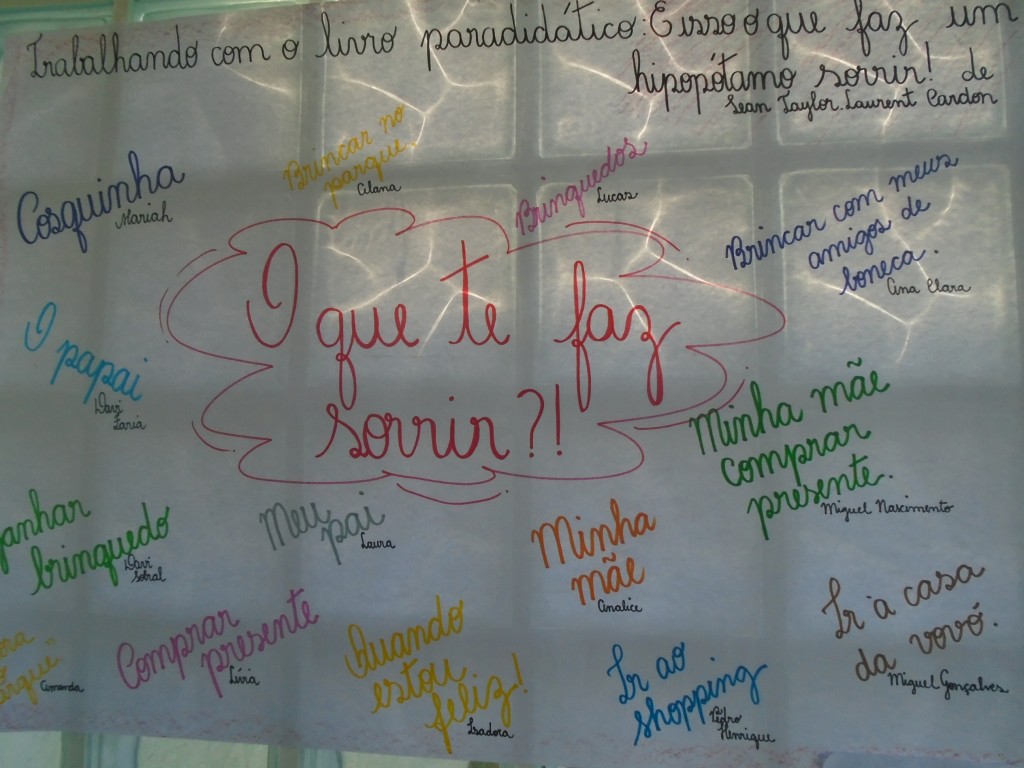 Trabalhando com o livro paradidático: E isso o que faz um
hipopótamo sorrir! de
Sean Taylor. Laurent Cardon
Cosquinha
Mariah
Brincar no
parque.
Alana
Brinquedos
Lucas
Brincar com meus
amigos de
boneca.
Ana Clara
O que te faz
sorrir?!
O papai
Davi
Faria
Minha mãe
comprar
presente.
Miguel Nascimento
anhar
brinquedo
Davi
Sobral
Meu
pai
Laura
Minha
mãe
Analice
Ir a casa
da vovó.
Miguel Gonçalves
Amanda
Comprar
presente
Lívia
Quando
estou
feliz!
Isadora
Ir ao
shopping
Pedro
Henrique